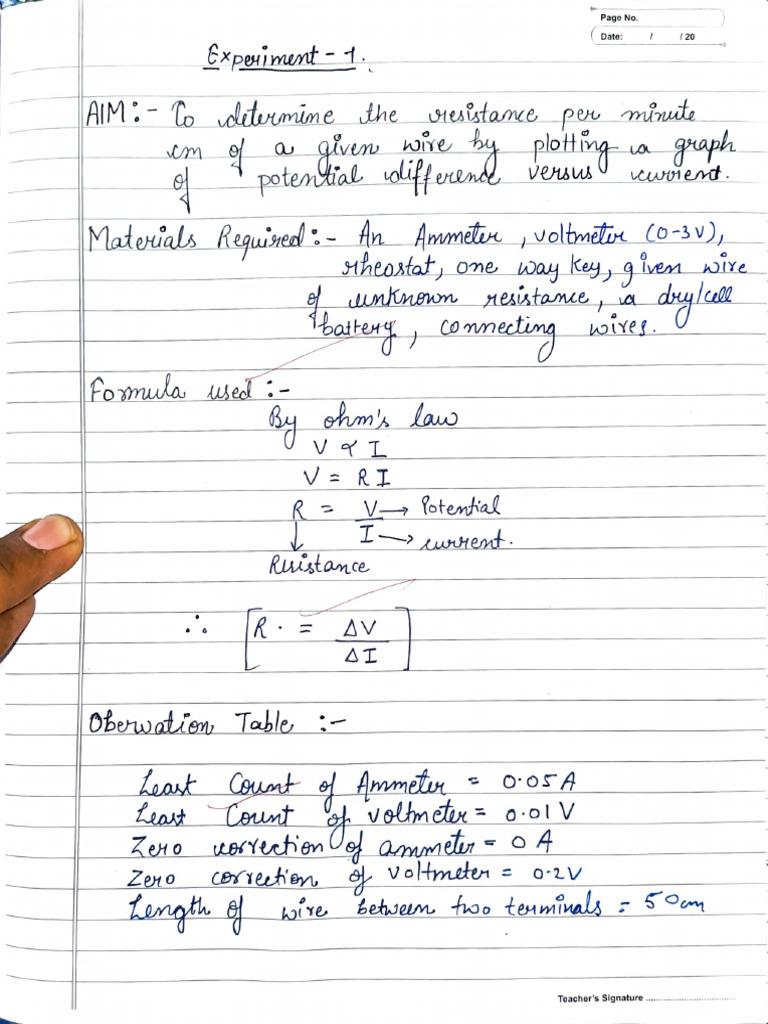 Page No.
Date: / / 20
Experiment - 1.
AIM:- To determine the resistance per minute
cm of a given wire by plotting a graph
of potential difference versus current.
Materials Required:- An Ammeter, voltmeter (0-3V),
rheostat, one way key, given wire
of unknown resistance, a dry/cell
battery, connecting wires.
Formula used:-
By ohm's law
V ∝ I
V = RI
R = V → Potential
I → current.
↓
Resistance
∴ [R. = ΔV
ΔI]
Oberwation Table :-
Least Count of Ammeter = 0.05A
Least Count of voltmeter = 0.01V
Zero correction of ammeter = 0 A
Zero correction of voltmeter = 0.2V
Length of wire between two terminals = 50cm
Teacher's Signature